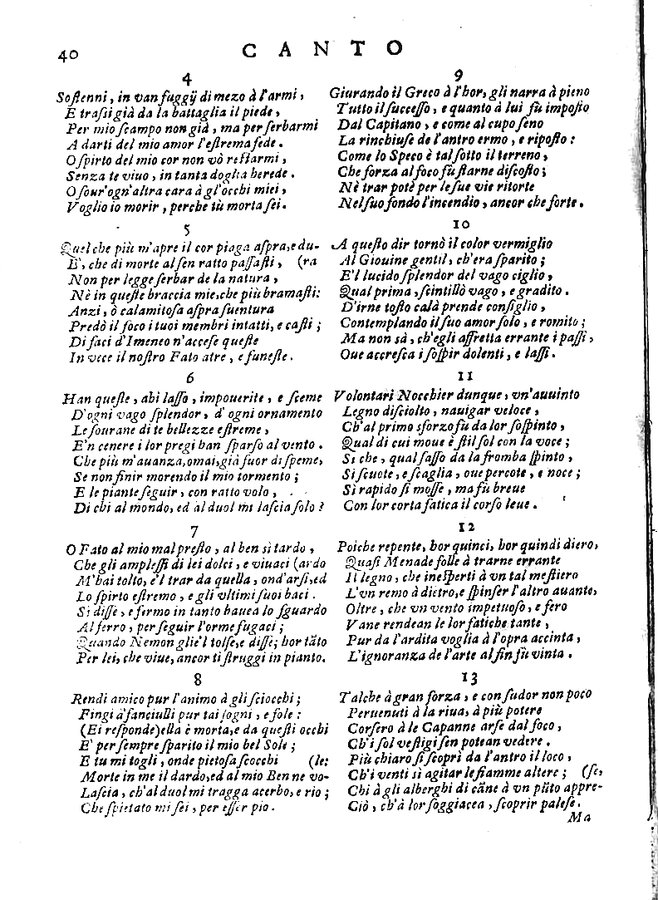 40
CANTO
4
Soſtenni, in van fuggÿ di mezo à l'armi,
E traſſi già da la battaglia il piede,
Per mio ſcampo non già, ma per ſerbarmi
A darti del mio amor l'eſtrema fede.
O ſpirto del mio cor non vò reſtarmi,
Senza te viuo, in tanta doglia herede.
O ſour'ogn'altra cara à gl'occhi miei,
Voglio io morir, perche tù morta ſei.
5
Quel che più m'apre il cor piaga aſpra, e du-
E', che di morte al ſen ratto paſſaſti, (ra
Non per legge ſerbar de la natura,
Nè in queſte braccia mie, che più bramaſti:
Anzi, ò calamitoſa aſpra ſuentura
Predò il foco i tuoi membri intatti, e caſti;
Di faci d'Imeneo n'acceſe queſte
In vece il noſtro Fato atre, e funeſte.
6
Han queſte, ahi laſſo, impouerite, e ſceme
D'ogni vago ſplendor, d'ogni ornamento
Le ſourane di te bellezze eſtreme,
E'n cenere i lor pregi han ſparſo al vento.
Che più m'auanza, omai, già fuor di ſpeme,
Se non finir morendo il mio tormento;
E le piante ſeguir, con ratto volo,
Di chi al mondo, ed al duol mi laſcia ſolo?
7
O Fato al mio mal preſto, al ben sì tardo,
Che gli ampleſſi di lei dolci, e viuaci (ardo
M'hai tolto, e'l trar da quella, ond'arſi, ed
Lo ſpirto eſtremo, e gli vltimi ſuoi baci.
Sì diſſe, e fermo in tanto hauea lo ſguardo
Al ferro, per ſeguir l'orme fugaci;
Quando Nemon glie'l tolſe, e diſſe; hor tāto
Per lei, che viue, ancor ti ſtruggi in pianto.
8
Rendi amico pur l'animo à gli ſciocchi;
Fingi à fanciulli pur tai ſogni, e fole:
(Ei reſponde) ella è morta, e da queſti occhi
E' per ſempre ſparito il mio bel Sole;
E tu mi togli, onde pietoſa ſcocchi (le:
Morte in me il dardo, ed al mio Ben ne vo-
Laſcia, ch'al duol mi tragga acerbo, e rio;
Che ſpietato mi ſei, per eſſer pio.
9
Giurando il Greco à l'hor, gli narra à pieno
Tutto il ſucceſſo, e quanto à lui fù impoſto
Dal Capitano, e come al cupo ſeno
La rinchiuſe de l'antro ermo, e ripoſto:
Come lo Speco è tal ſotto il terreno,
Che forza al foco fù ſtarne diſcoſto;
Nè trar potè per le ſue vie ritorte
Nel ſuo fondo l'incendio, ancor che forte.
10
A queſto dir tornò il color vermiglio
Al Giouine gentil, ch'era ſparito;
E'l lucido ſplendor del vago ciglio,
Qual prima, ſcintillò vago, e gradito.
D'irne toſto colà prende conſiglio,
Contemplando il ſuo amor ſolo, e romito;
Ma non sà, ch'egli affretta errante i paſſi,
Oue accreſca i ſoſpir dolenti, e laſſi.
11
Volontari Nocchier dunque, vn'auuinto
Legno diſciolto, nauigar veloce,
Ch'al primo sforzo fù da lor ſoſpinto,
Qual di cui moue è ſtil ſol con la voce;
Sì che, qual ſaſſo da la fromba ſpinto,
Si ſcuote, e ſcaglia, oue percote, e noce;
Sì rapido ſi moſſe, ma fù breue
Con lor corta fatica il corſo leue.
12
Poiche repente, hor quinci, hor quindi diero,
Quaſi Menade folle à trarne errante
Il legno, che ineſperti à vn tal meſtiero
L'vn remo à dietro, e ſpinſer l'altro auante,
Oltre, che vn vento impetuoſo, e fero
Vane rendean le lor fatiche tante,
Pur da l'ardita voglia à l'opra accinta,
L'ignoranza de l'arte al fin fù vinta.
13
Talche à gran forza, e con ſudor non poco
Peruenuti à la riua, à più potere
Corſero à le Capanne arſe dal foco,
Ch'i ſol veſtigi ſen potean vedere.
Più chiaro ſi ſcoprì da l'antro il loco,
Ch'i venti sì agitar le fiamme altere; (ſe,
Chi à gli alberghi di cāne à vn pūto appre-
Ciò, ch'à lor ſoggiacea, ſcoprir paleſe.
Ma